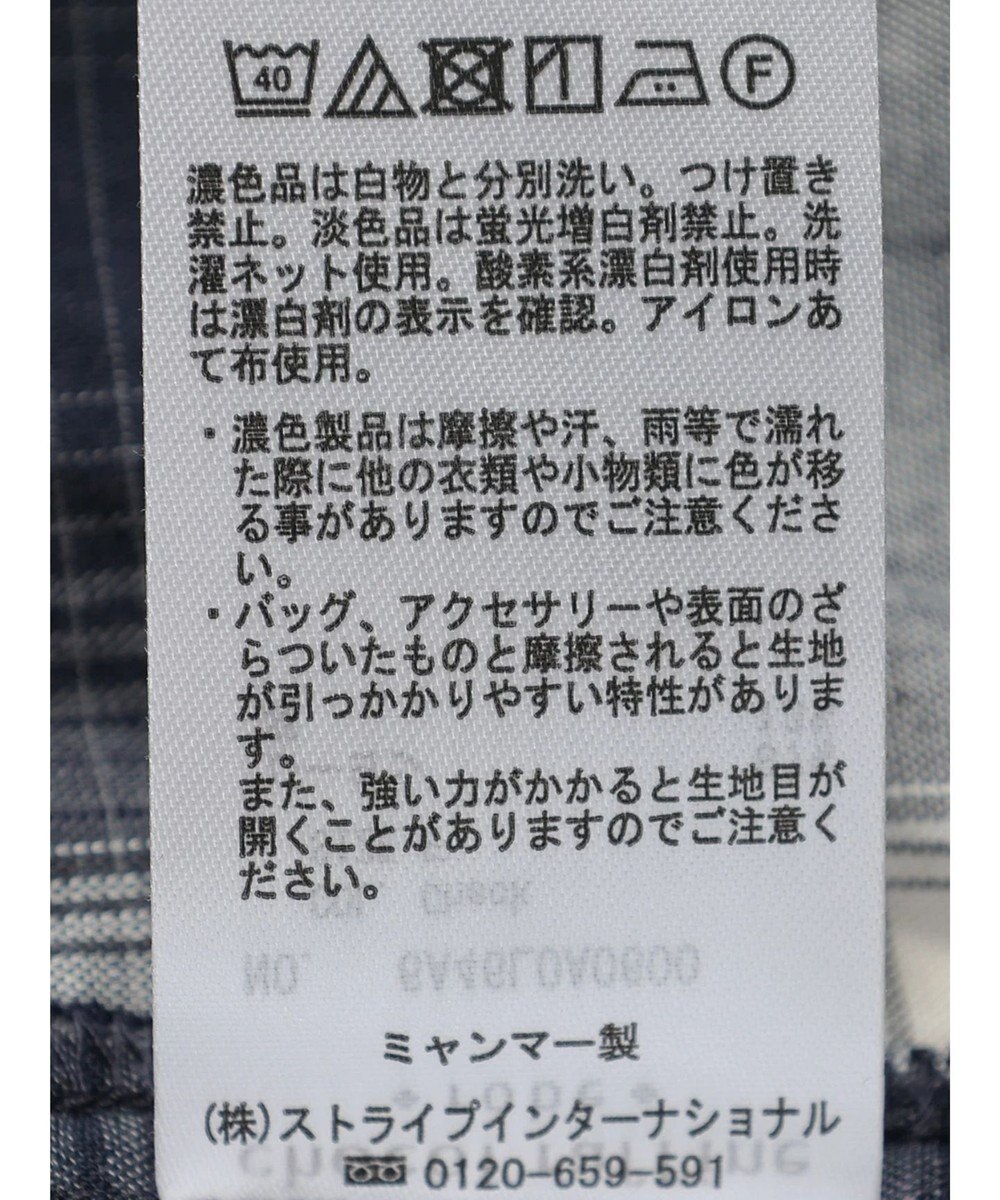 40 F
濃色品は白物と分別洗い。つけ置き
禁止。淡色品は蛍光増白剤禁止。洗
濯ネット使用。酸素系漂白剤使用時
は漂白剤の表示を確認。アイロンあ
て布使用。
・濃色製品は摩擦や汗、雨等で濡れ
た際に他の衣類や小物類に色が移
る事がありますのでご注意くださ
い。
・バッグ、アクセサリーや表面のざ
らついたものと摩擦されると生地
が引っかかりやすい特性がありま
す。
また、強い力がかかると生地目が
開くことがありますのでご注意く
ださい。
Check
NO. 6A46L0A0600
ミャンマー製
(株)ストライプインターナショナル
0120-659-591